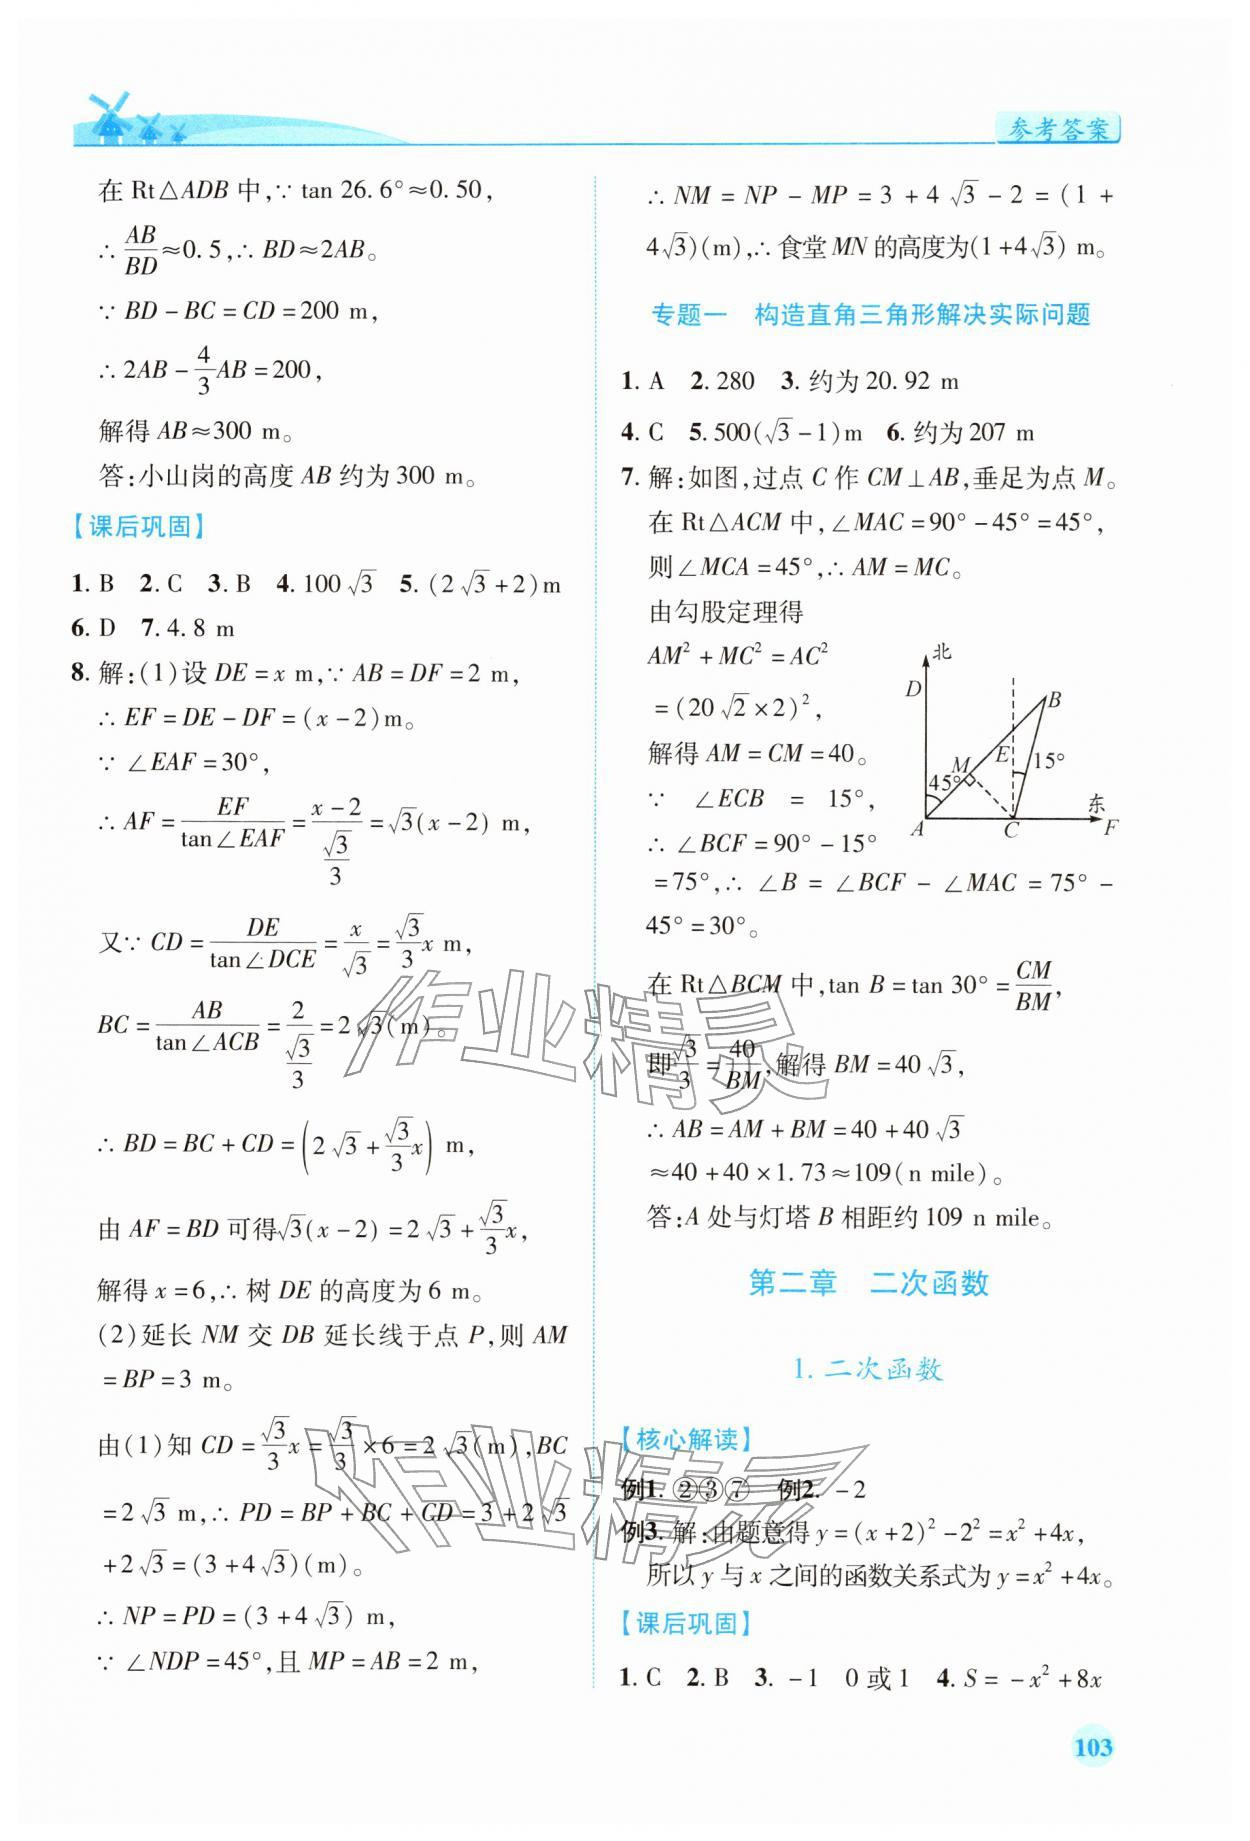 参考答案
在 Rt△ADB 中,∵ tan 26.6°≈0.50,
∴ AB/BD≈0.5,∴ BD≈2AB。
∵ BD-BC=CD=200 m,
∴ 2AB-4/3AB=200,
解得 AB≈300 m。
答:小山岗的高度 AB 约为 300 m。
【课后巩固】
1. B 2. C 3. B 4. 100√3 5. (2√3+2)m
6. D 7. 4.8 m
8. 解:(1)设 DE=x m,∵ AB=DF=2 m,
∴ EF=DE-DF=(x-2)m。
∵ ∠EAF=30°,
∴ AF=EF/tan∠EAF=(x-2)/(√3/3)=√3(x-2) m,
又∵ CD=DE/tan∠DCE=x/√3=√3/3x m,
BC=AB/tan∠ACB=2/(√3/3)=2√3(m)。
∴ BD=BC+CD=(2√3+√3/3x) m,
由 AF=BD 可得√3(x-2)=2√3+√3/3x,
解得 x=6,∴ 树 DE 的高度为 6 m。
(2)延长 NM 交 DB 延长线于点 P,则 AM
=BP=3 m。
由(1)知 CD=√3/3x=√3/3×6=2√3(m),BC
=2√3 m,∴ PD=BP+BC+CD=3+2√3
+2√3=(3+4√3)(m)。
∴ NP=PD=(3+4√3) m,
∵ ∠NDP=45°,且 MP=AB=2 m,
∴ NM=NP-MP=3+4√3-2=(1+
4√3)(m),∴ 食堂 MN 的高度为(1+4√3) m。
专题一 构造直角三角形解决实际问题
1. A 2. 280 3. 约为 20.92 m
4. C 5. 500(√3-1)m 6. 约为 207 m
7. 解:如图,过点 C 作 CM⊥AB,垂足为点 M。
在 Rt△ACM 中,∠MAC=90°-45°=45°,
则∠MCA=45°,∴ AM=MC。
由勾股定理得
AM²+MC²=AC²
=(20√2×2)²,
解得 AM=CM=40。
∵ ∠ECB=15°,
∴ ∠BCF=90°-15°
=75°,∴ ∠B=∠BCF-∠MAC=75°-
45°=30°。
北
D
B
M
E
15°
45°
东
A
C
F
在 Rt△BCM 中,tan B=tan 30°=CM/BM,
即√3/3=40/BM,解得 BM=40√3,
∴ AB=AM+BM=40+40√3
≈40+40×1.73≈109(n mile)。
答:A 处与灯塔 B 相距约 109 n mile。
第二章 二次函数
1. 二次函数
【核心解读】
例1. ②③⑦ 例2. -2
例3. 解:由题意得 y=(x+2)²-2²=x²+4x,
所以 y 与 x 之间的函数关系式为 y=x²+4x。
【课后巩固】
1. C 2. B 3. -1 0 或 1 4. S=-x²+8x
作业精灵
作业精灵
103